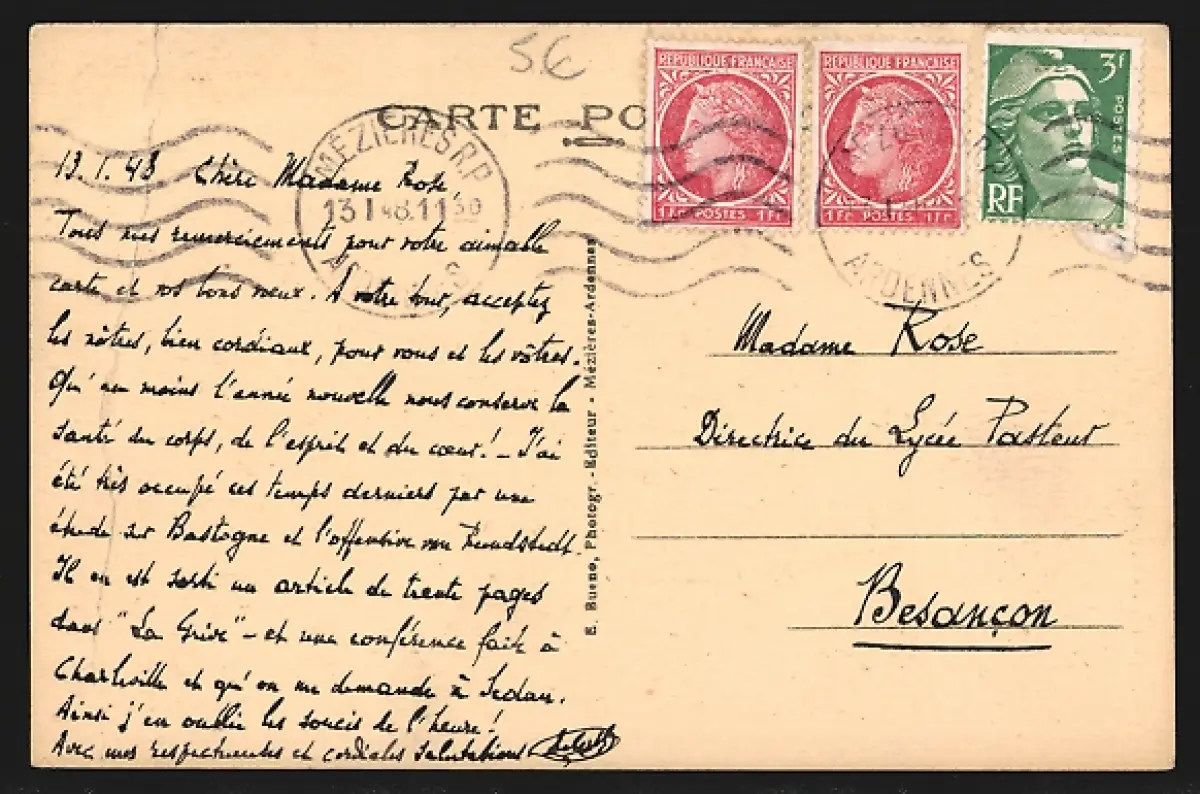 5€
CARTE PO
RÉPUBLIQUE FRANÇAISE
1Fr POSTES 1Fr
RÉPUBLIQUE FRANÇAISE
1Fr POSTES 1Fr
3f
POSTES
RF
MÉZIÈRES R.P
13 1 48.11 30
ARDENNES
13.1.48 Chère Madame Rose,
Tous mes remerciements pour votre aimable
carte et vos bons vœux. A votre tour, acceptez
les nôtres, bien cordiaux, pour vous et les vôtres.
Qu'au moins l'année nouvelle nous conserve la
santé du corps, de l'esprit et du cœur! - J'ai
été très occupé ces temps derniers par une
étude sur Bastogne et l'offensive von Rundstedt.
Il en est sorti un article de trente pages
dans "La Grive" - et une conférence faite à
Charleville et qu'on me demande à Sedan.
Ainsi j'en oublie les soucis de l'heure!
Avec mes respectueuses et cordiales salutations
E. Bueno, Photogr.-Editeur - Mézières-Ardennes
Madame Rose
Directrice du Lycée Pasteur
Besançon